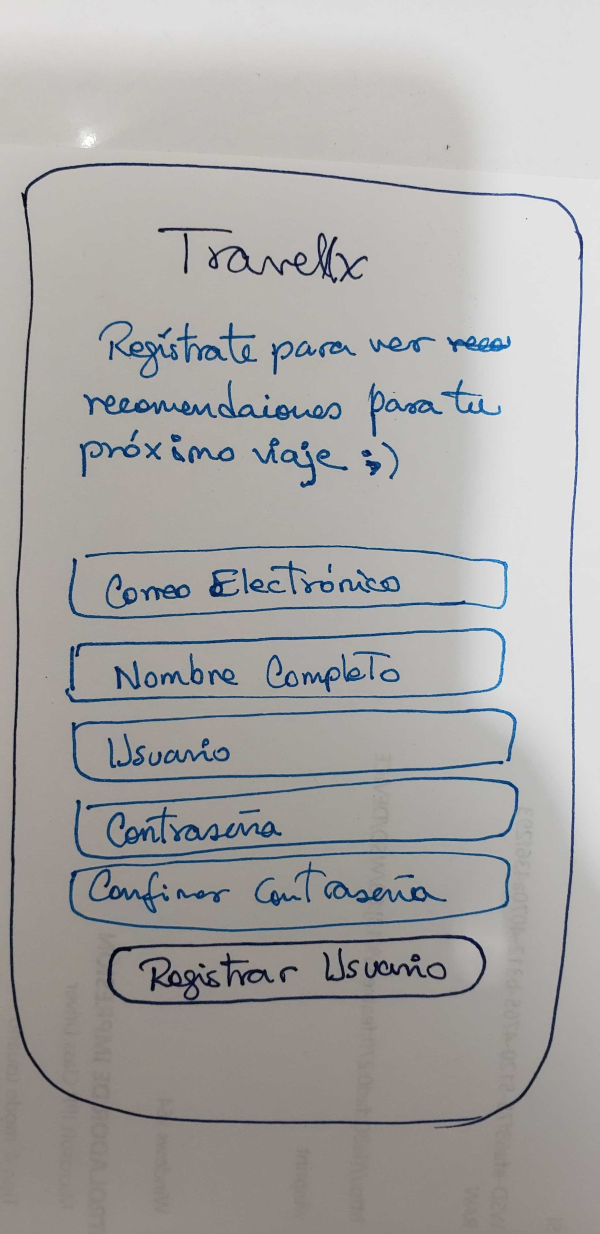 Travellx
Regístrate para ver
recomendaiones para tu
próximo viaje ;)
Correo Electrónico
Nombre Completo
Usuario
Contraseña
Confirmar Contraseña
Registrar Usuario